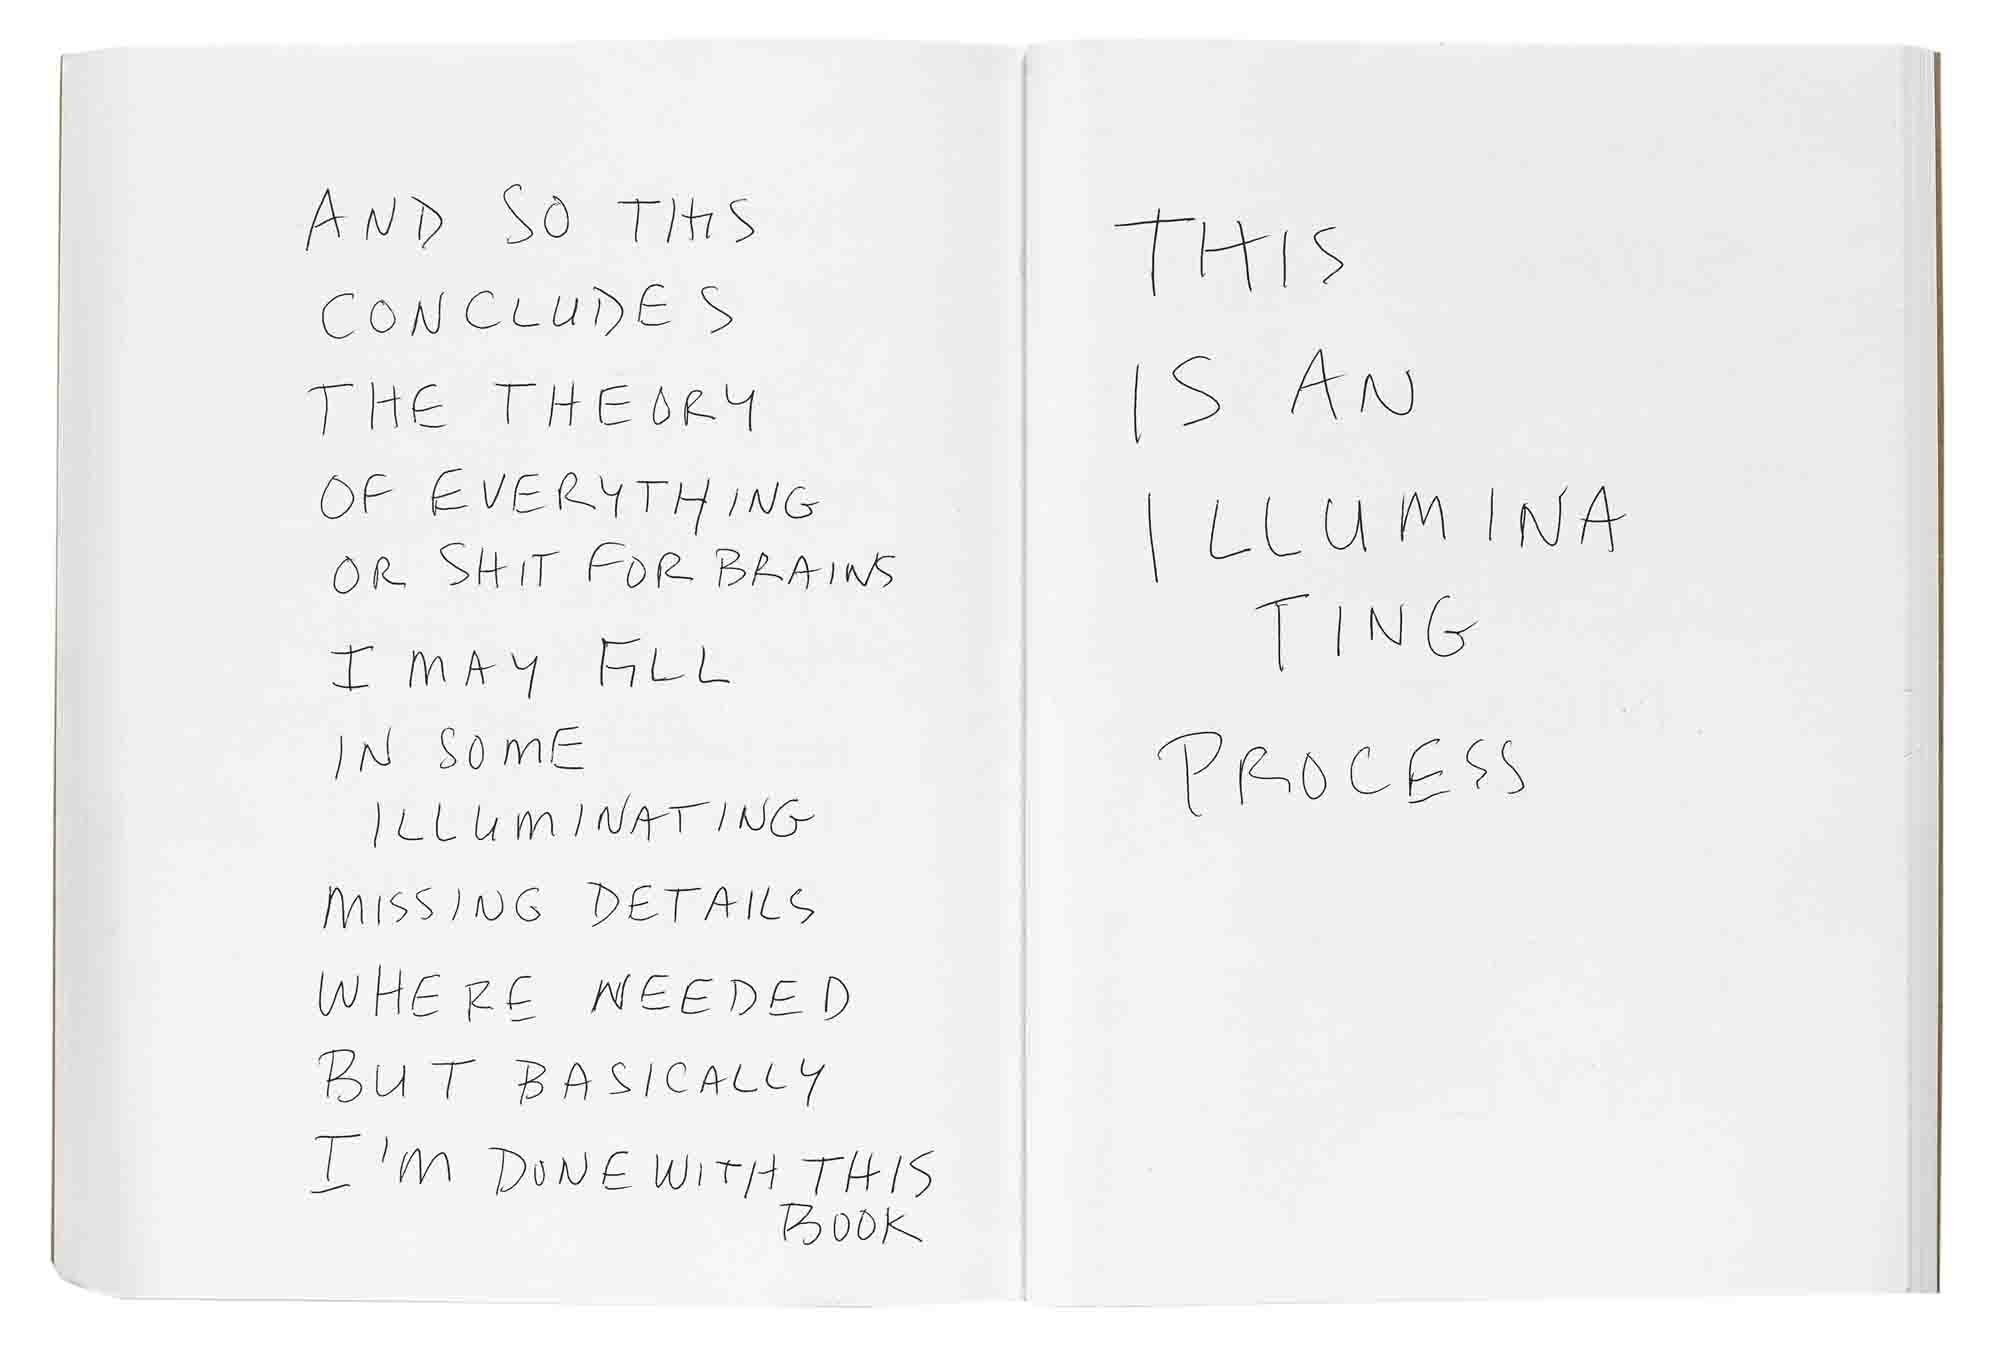 AND SO THIS
CONCLUDES
THE THEORY
OF EVERYTHING
OR SHIT FOR BRAINS
I MAY FILL
IN SOME
ILLUMINATING
MISSING DETAILS
WHERE NEEDED
BUT BASICALLY
I'M DONE WITH THIS
BOOK
THIS
IS AN
ILLUMINA
TING
PROCESS